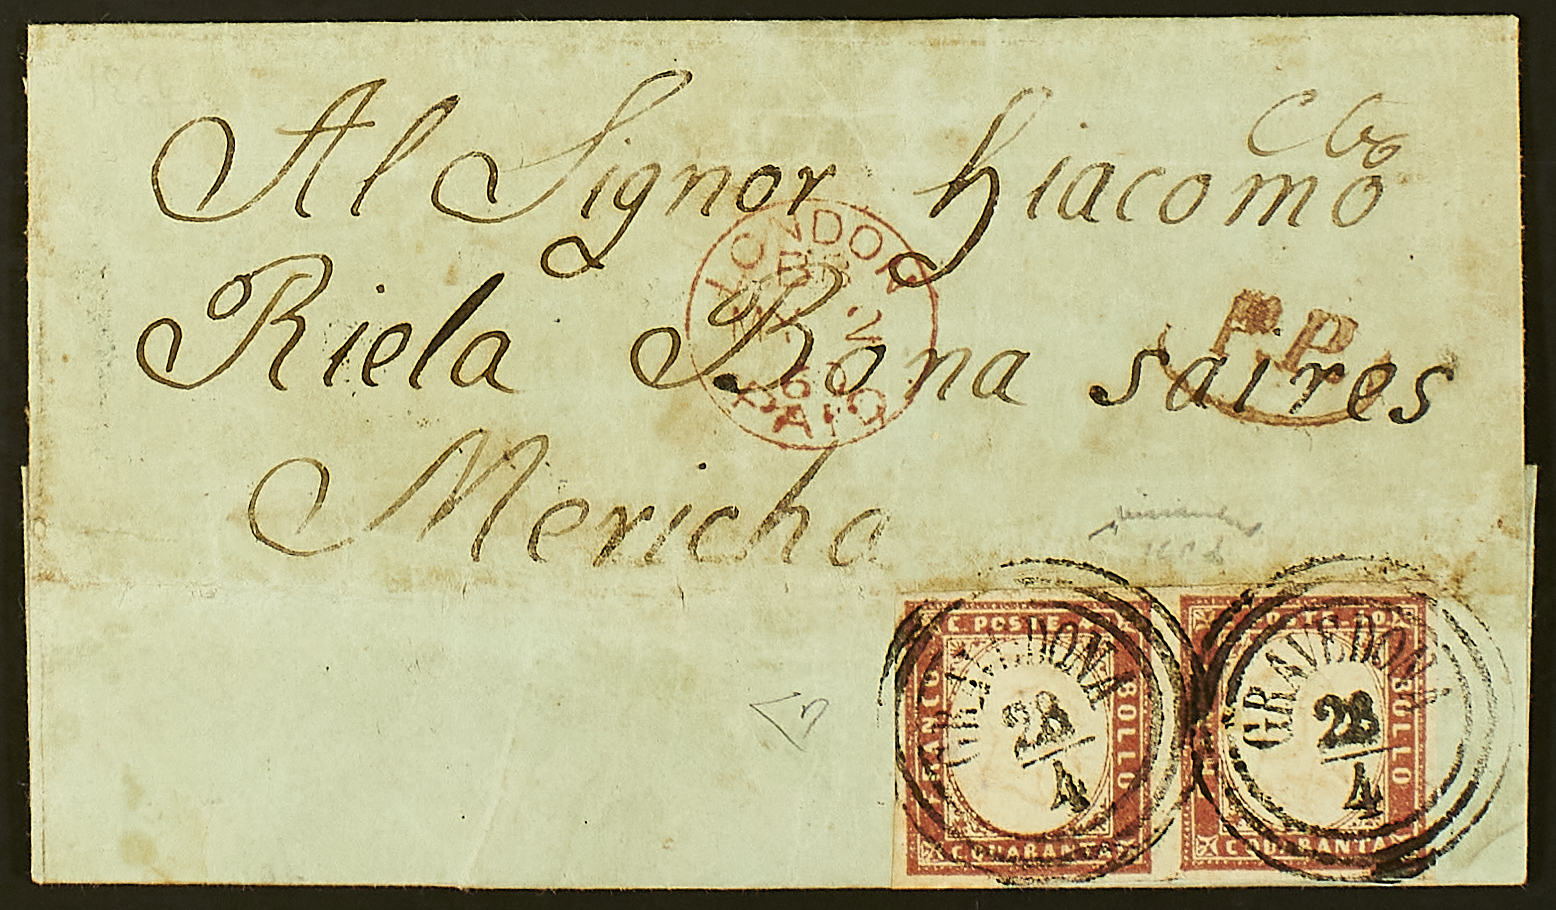 Al Signor Giacomo
Riela Bona saires
Mericha
LONDON
2
60
PAID
P.P.
C. POSTE 40
FRANCO
BOLLO
C. QUARANTA
GRAVEDONA
28
4
C. POSTE. 40
BOLLO
C. QUARANTA
GRAVEDONA
28
4